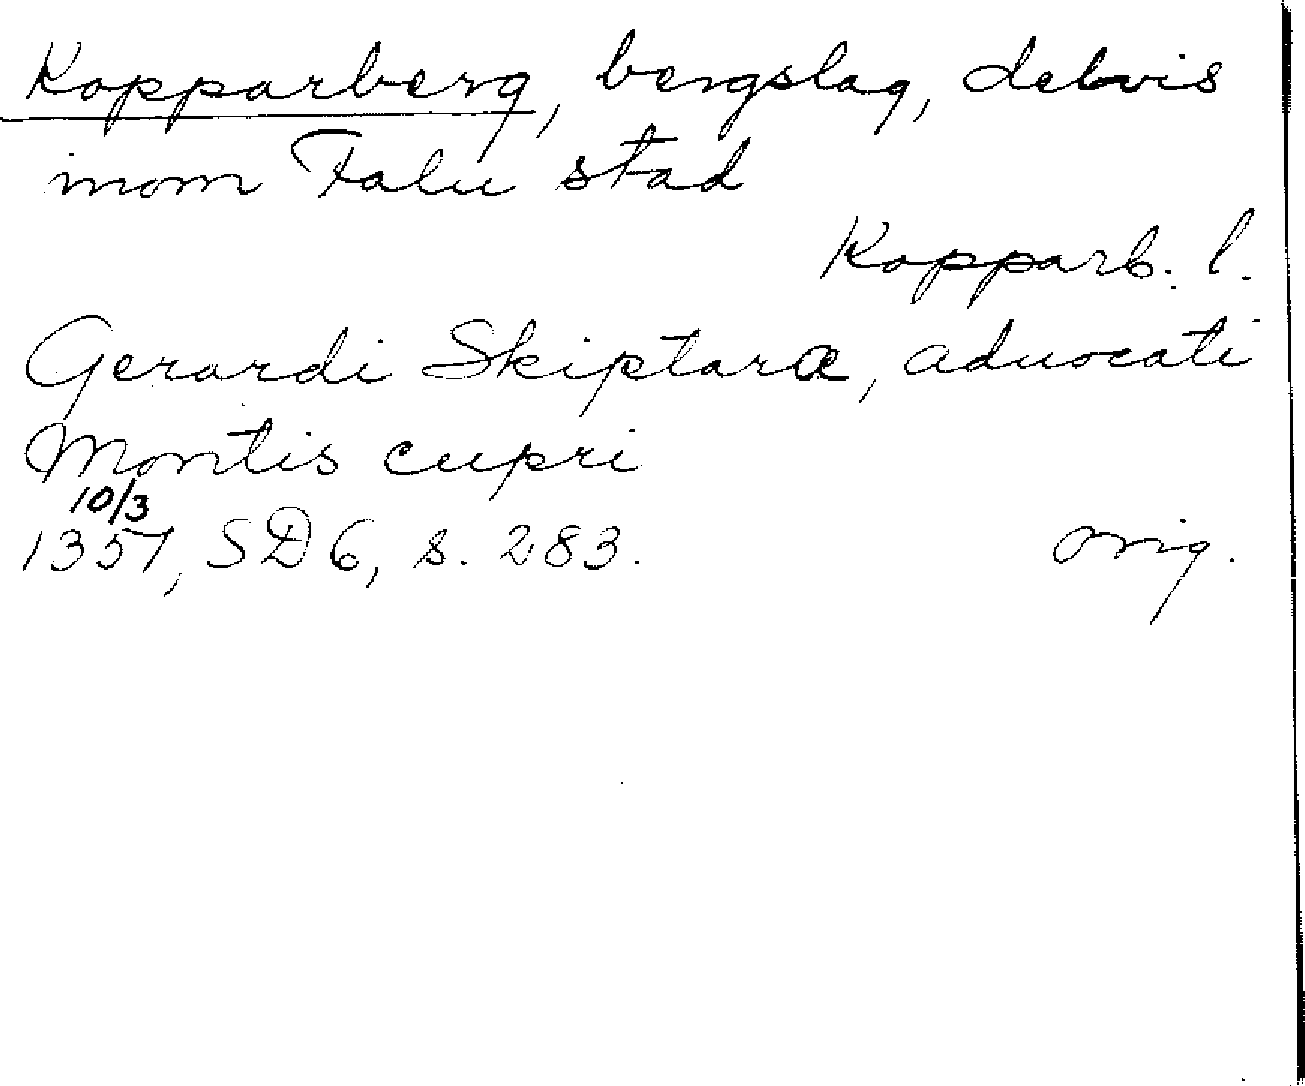 Kopparberg, bergslag, delvis
inom Falu stad
Kopparb. l.
Gerardi Skiptara, aduocati
Montis cupri
10/3
1357, SD 6, s. 283. orig.